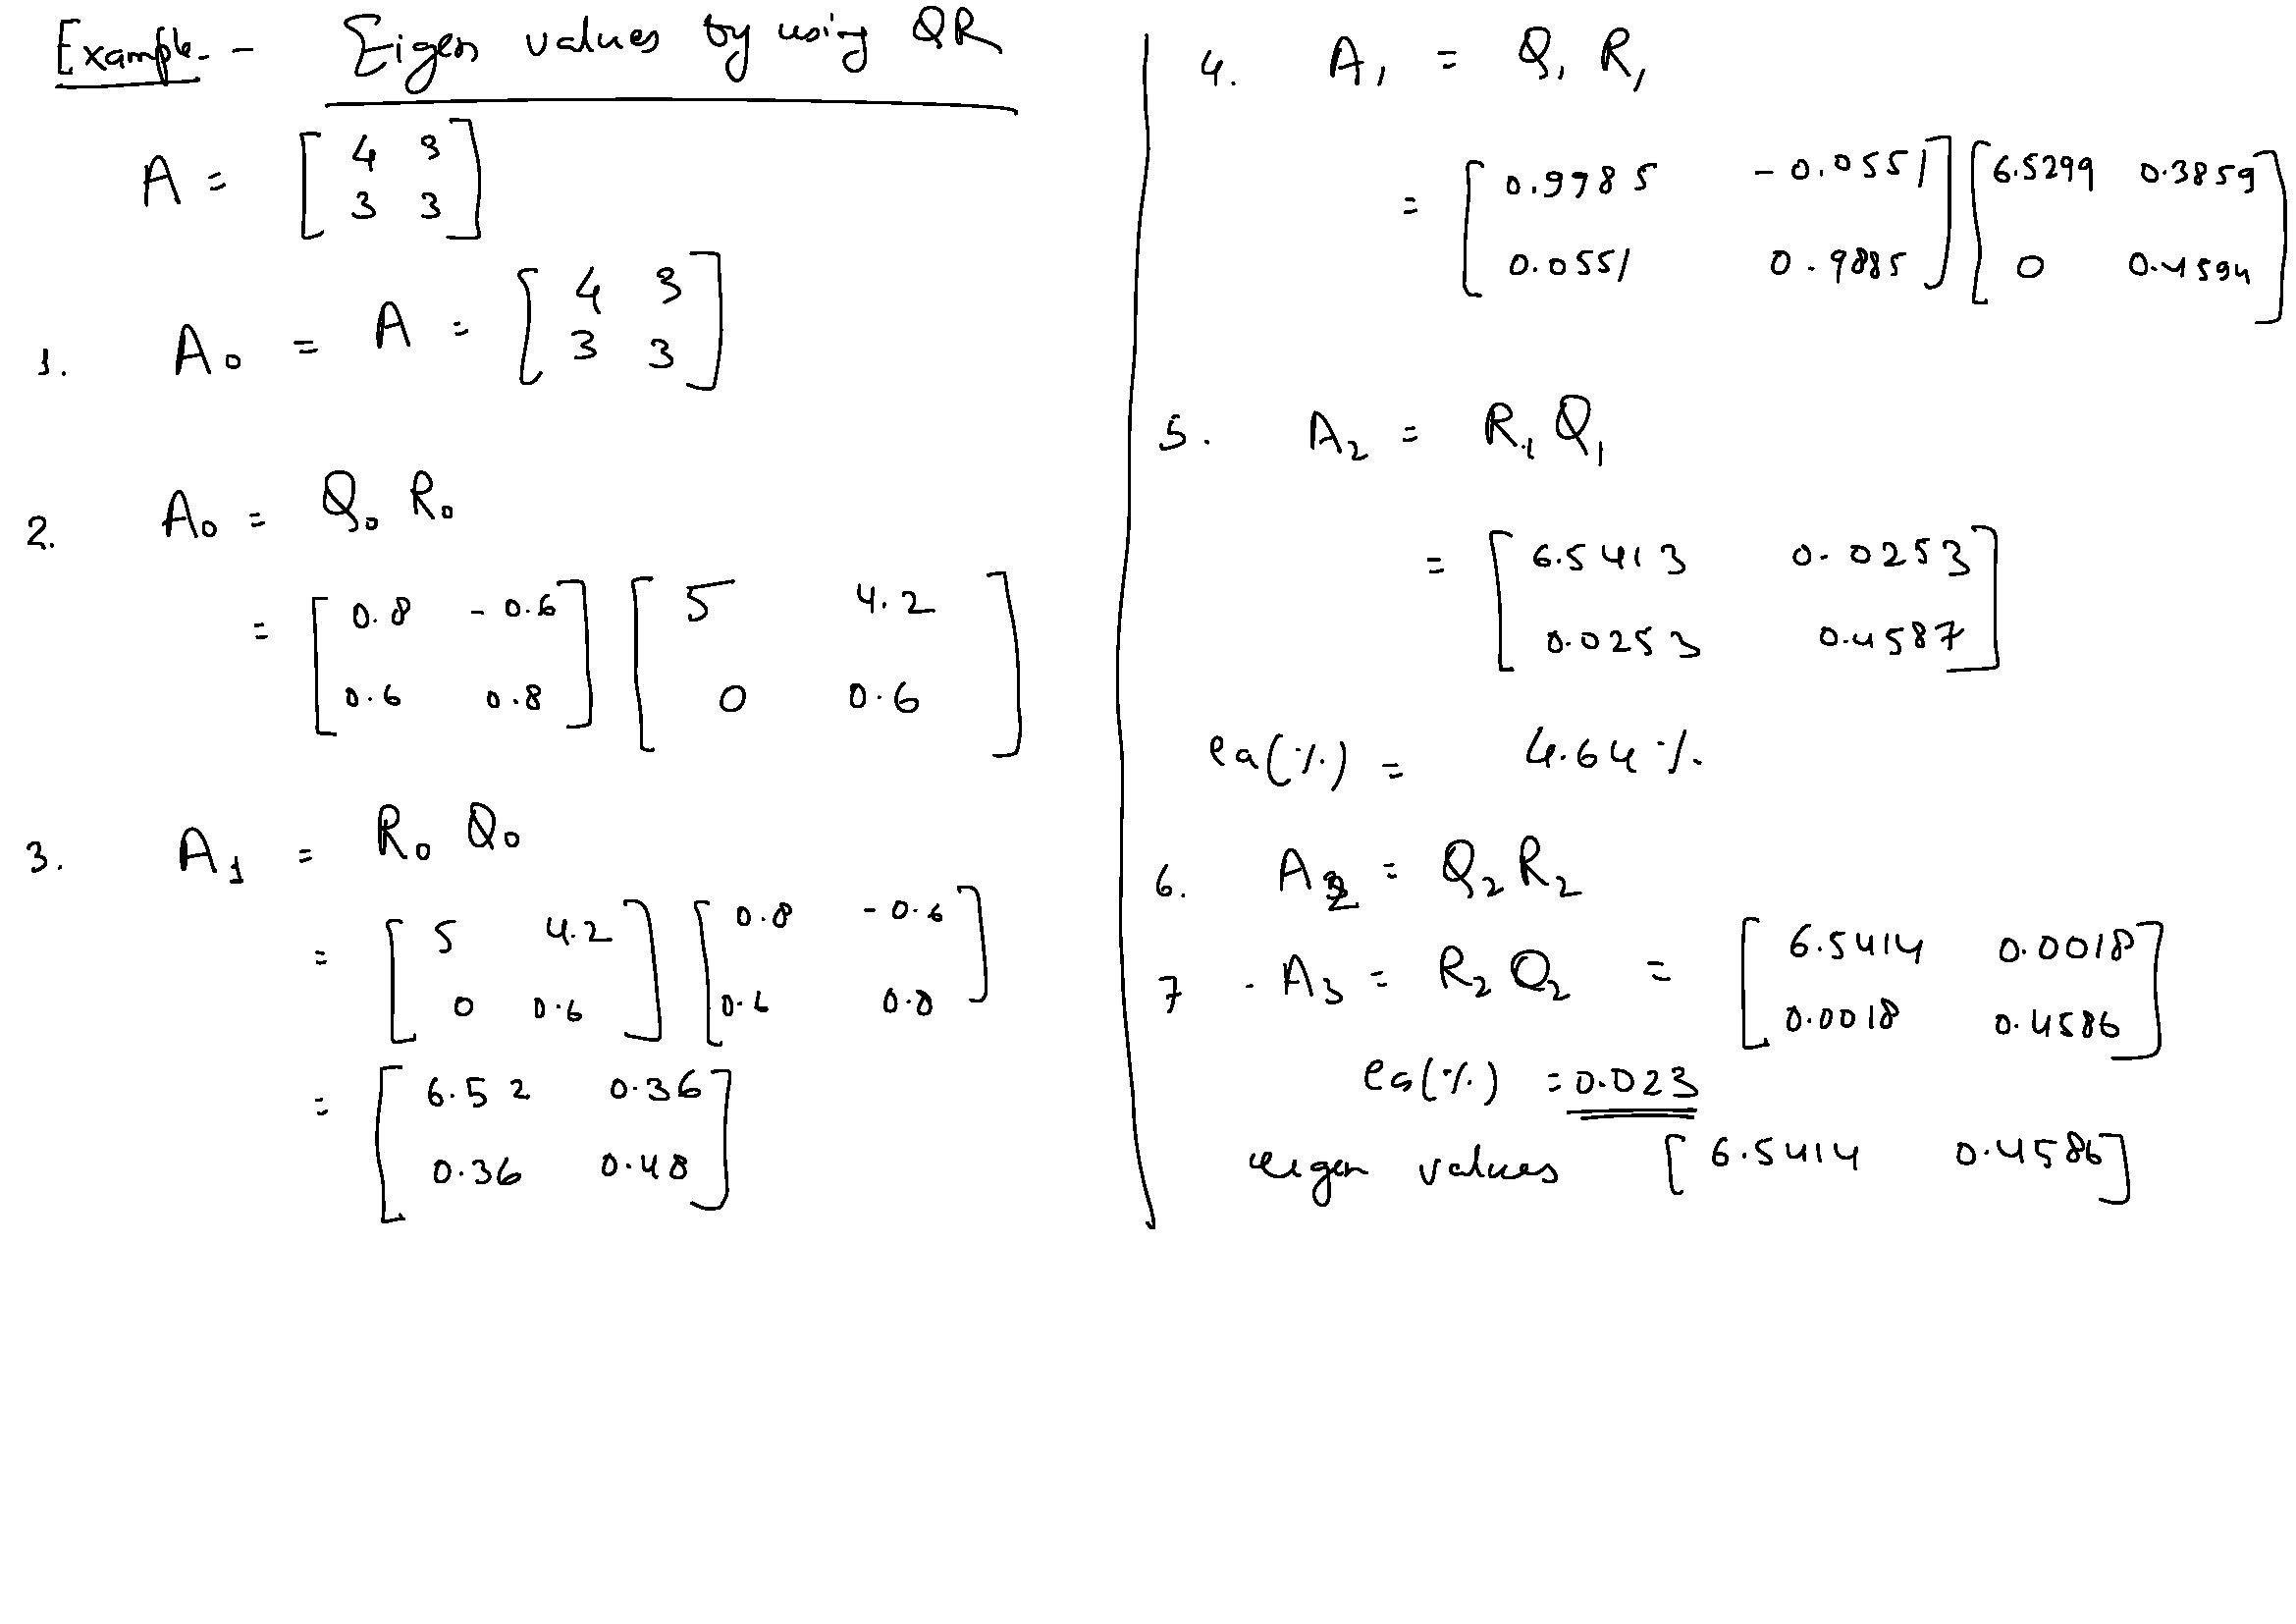 Example - Eigen values by using QR
A = [4 3
3 3]
1. A₀ = A = [4 3
3 3]
2. A₀ = Q₀ R₀
= [0.8 -0.6] [5 4.2
0.6 0.8] [0 0.6]
3. A₁ = R₀ Q₀
= [5 4.2] [0.8 -0.6
0 0.6] [0.6 0.8]
= [6.52 0.36
0.36 0.48]
4. A₁ = Q₁ R₁
= [0.9985 -0.0551] [6.5299 0.3859
0.0551 0.9885] [0 0.4594]
5. A₂ = R₁ Q₁
= [6.5413 0.0253
0.0253 0.4587]
ea(%) = 4.64 %
6. A₂ = Q₂ R₂
7. A₃ = R₂ Q₂ = [6.5414 0.0018
0.0018 0.4586]
ea(%) = 0.023
eigen values [6.5414 0.4586]